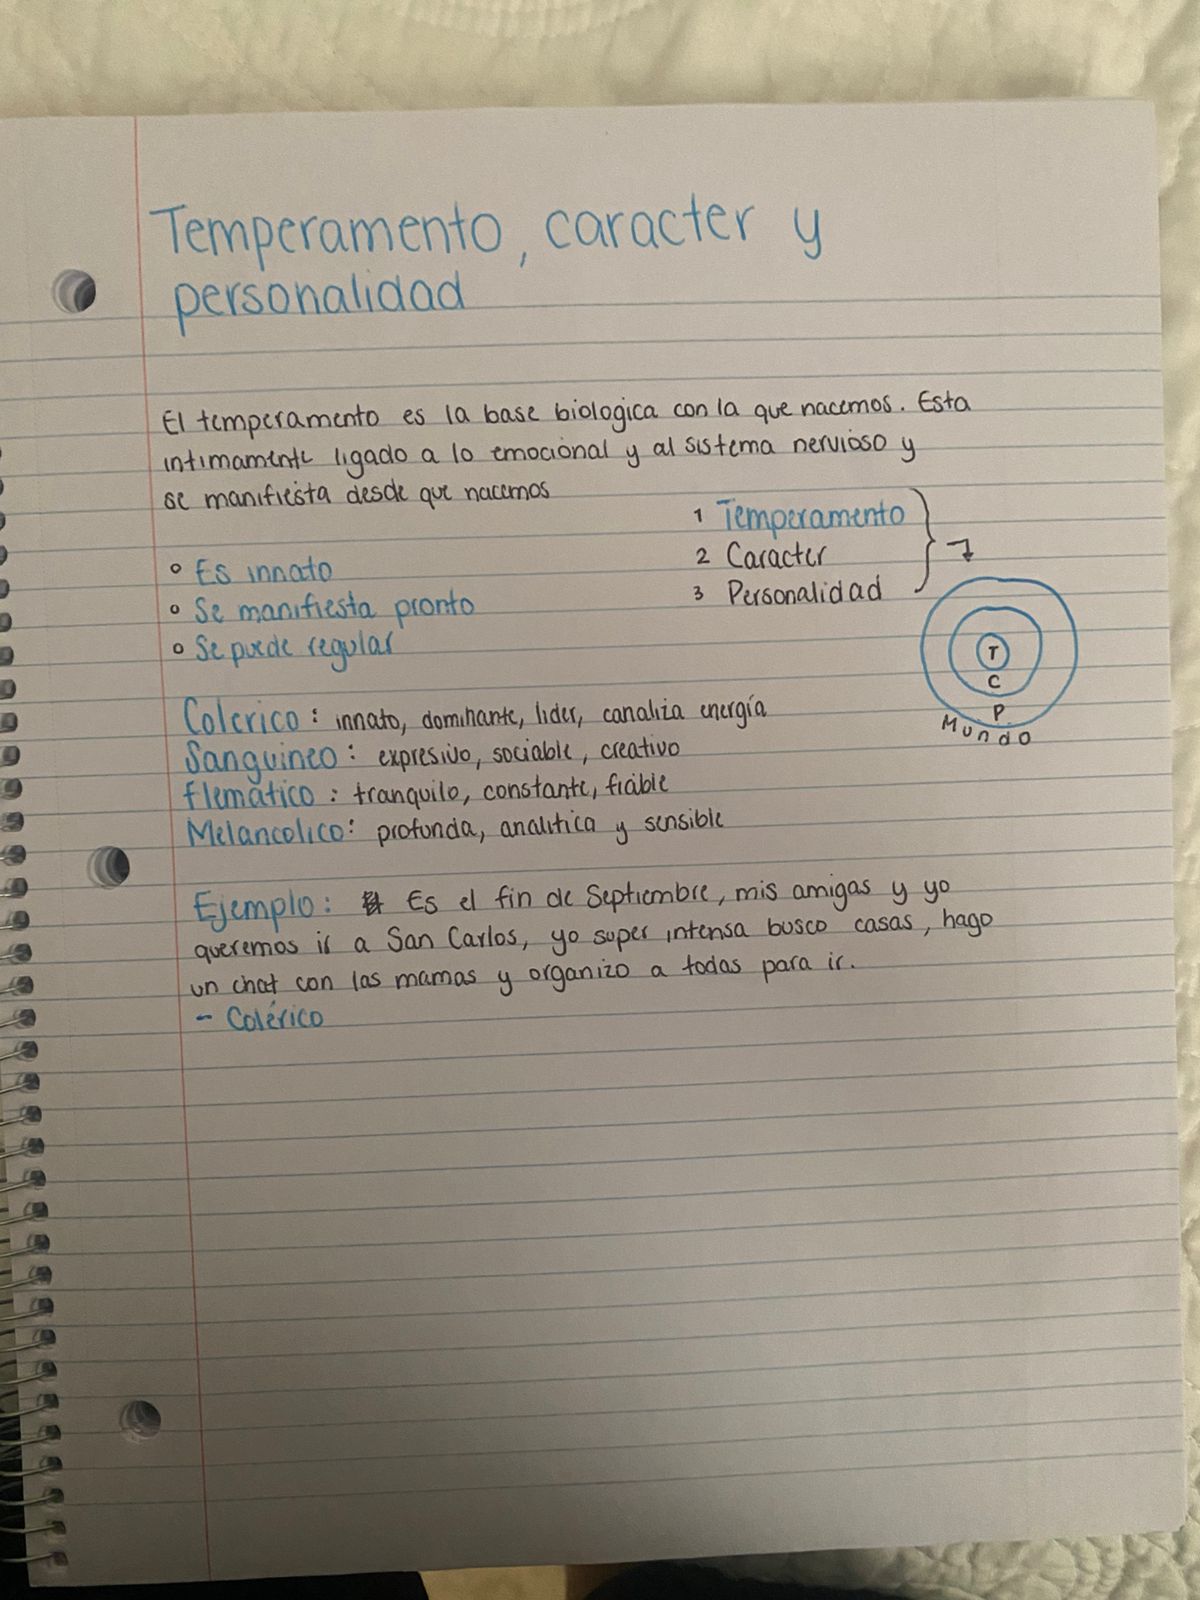 Temperamento, caracter y
personalidad
El temperamento es la base biologica con la que nacemos. Esta
intimamente ligado a lo emocional y al sistema nervioso y
se manifiesta desde que nacemos
1 Temperamento
2 Caracter
3 Personalidad
° Es innato
° Se manifiesta pronto
° Se puede regular
T
C
P
Mundo
Colerico: innato, dominante, lider, canaliza energía
Sanguineo: expresivo, sociable, creativo
flematico: tranquilo, constante, fiable
Melancolico: profunda, analitica y sensible
Ejemplo: Es el fin de Septiembre, mis amigas y yo
queremos ir a San Carlos, yo super intensa busco casas, hago
un chat con las mamas y organizo a todas para ir.
- Colérico